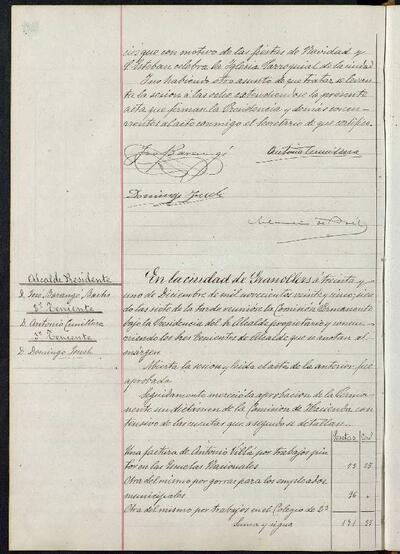 cios que con motivo de las fiestas de Navidad y
S. Esteban celebra la Iglesia Parroquial de la ciudad
Y no habiendo otro asunto de que tratar se levan
ta la sesión a las ocho extendiendose la presente
acta que firman la Presidencia y demás concu-
rrentes al acto conmigo el Secretario de que certifico.
Antonio Cumellera
Domingo Josch
Alcalde Presidente
D. Fco. Barangé
2º Teniente
D. Antonio Cumellera
3º Teniente
D. Domingo Josch
En la ciudad de Granollers a treinta y
uno de Diciembre de mil novecientos veinte y cinco, sien
do las siete de la tarde reunióse la Comisión Permanente
bajo la Presidencia del Sr Alcalde propietario y concu-
rriendo los tres Tenientes de Alcalde que se anotan al
margen
Abierta la sesión y leida el acta de la anterior fué
aprobada
Seguidamente mereció la aprobación de la Perma
nente un dictamen de la Comisión de Hacienda com
prensivo de las cuentas que a seguido se detallan.
Pesetas
Una factura de Antonio Villá por trabajos pin
tor en las Escuelas Nacionales 25
Otra del mismo por gorras para los empleados
municipales 96 "
Otra del mismo por trabajos en el Colegio de 2ª
Suma y sigue 171 25